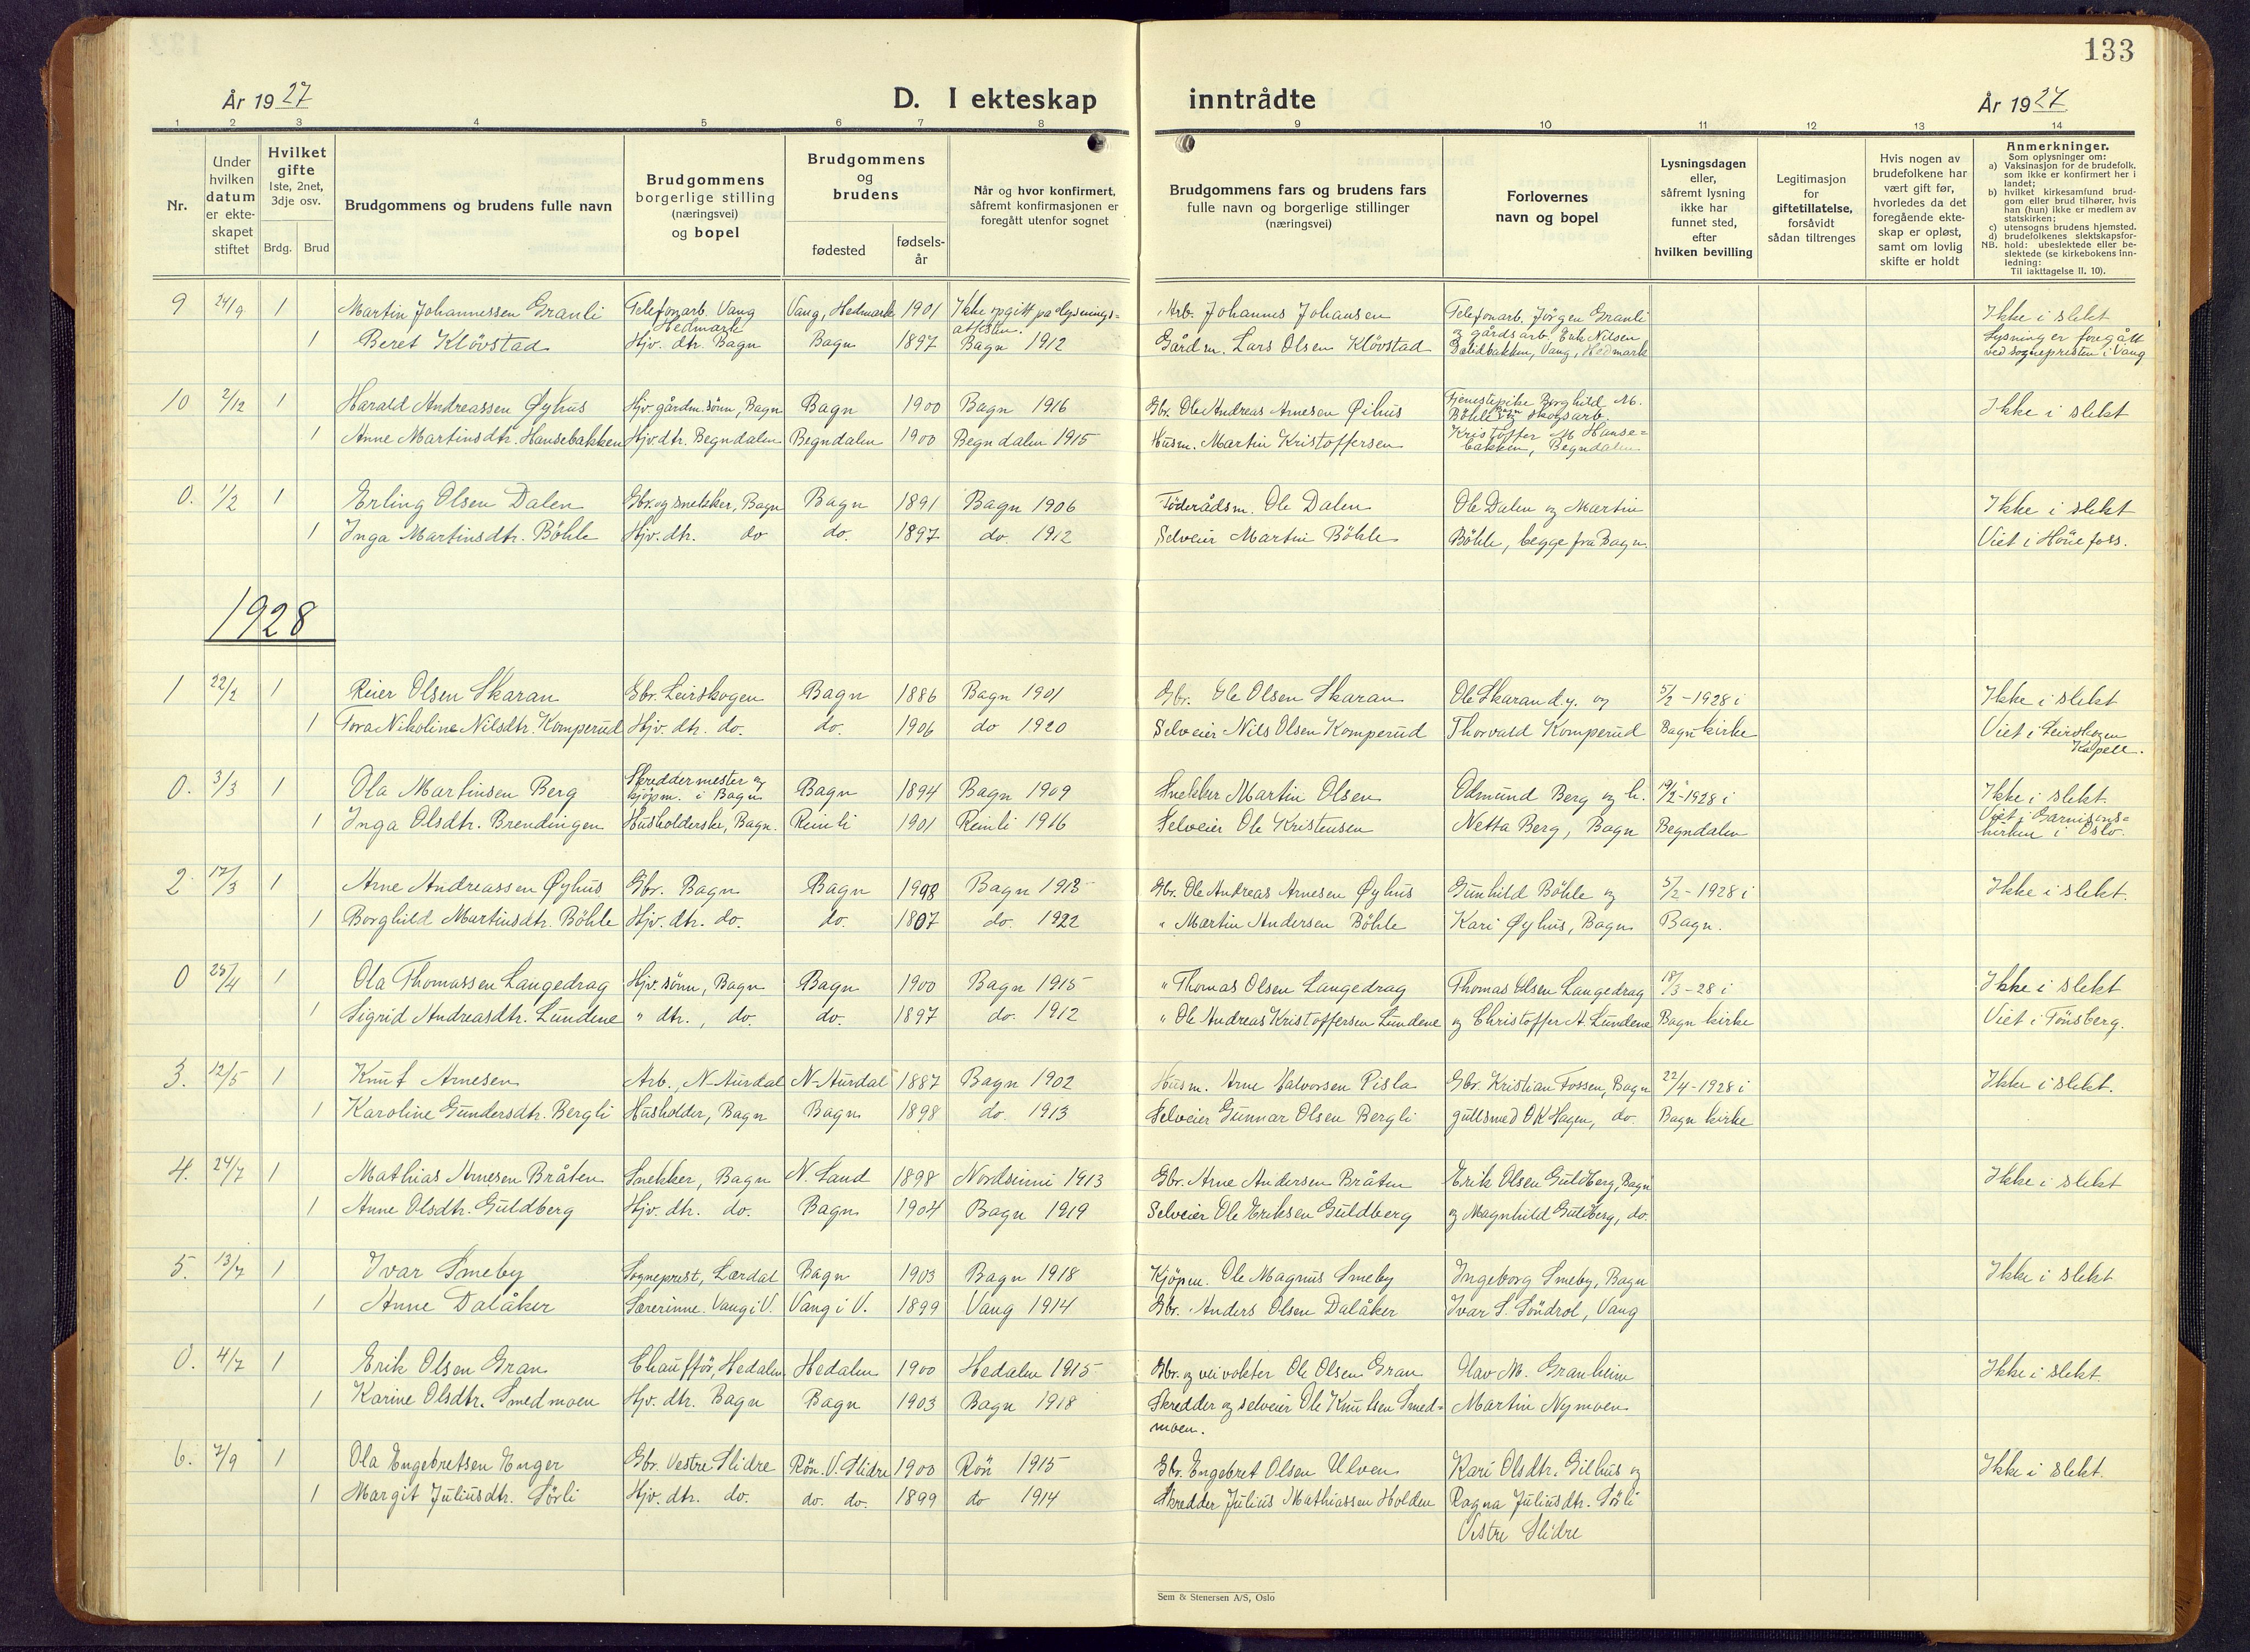 133
År 1927
D. I ekteskap inntrådte
År 1927
1 2 3 4 5 6 7 8 9 10 11 12 13 14
Nr.
Under
hvilken
datum
er ekte-
skapet
stiftet
Hvilket
gifte
1ste, 2net,
3dje osv.
Brdg. Brud
Brudgommens og brudens fulle navn
Brudgommens
borgerlige stilling
(næringsvei)
og bopel
Brudgommens
og
brudens
fødested
fødsels-
år
Når og hvor konfirmert,
såfremt konfirmasjonen er
foregått utenfor sognet
Brudgommens fars og brudens fars
fulle navn og borgerlige stillinger
(næringsvei)
Forlovernes
navn og bopel
Lysningsdagen
eller,
såfremt lysning
ikke har
funnet sted,
efter
hvilken bevilling
Legitimasjon
for
giftetillatelse,
forsåvidt
sådan tiltrenges
Hvis nogen av
brudefolkene har
vært gift før,
hvorledes da det
foregående ekte-
skap er opløst,
samt om lovlig
skifte er holdt
Anmerkninger.
Som oplysninger om:
a) Vaksinasjon for de brudefolk,
som ikke er konfirmert her i
landet;
b) hvilket kirkesamfund brud-
gom eller brud tilhører, hvis
han (hun) ikke er medlem av
statskirken;
c) utensogns brudens hjemsted.
d) brudefolkenes slektskapsfor-
NB. hold: ubeslektede eller be-
slektede (se kirkebokens Inn-
ledning:
Til iakttagelse II. 10).
9 24/9 1 Martin Johannessen Granli Telefonarb. Vang Hedmark Vang, Hedmark 1901 Ikke opgitt på lysnings= attesten. Arb. Johannes Johansen Telefonarb. Jörgen Granli Ikke i slekt
1 Beret Klövstad Hjv. dtr. Bagn Bagn 1897 Bagn 1912 Gårdm. Lars Olsen Klövstad og gårdsarb. Erik Nilsen Dalidbakken, Vang, Hedmark Lysning er foregått ved sognepresten i Vang
10 2/12 1 Harald Andreassen Øyhus Hjv. gårdm. sönn, Bagn Bagn 1900 Bagn 1916 Gbr. Ole Andreas Arnesen Øihus Tjenestepike Borghild M. Böhle Bagn og skogsarb. Ikke i slekt
1 Anne Martinsdtr. Hansebakken Hjv dtr. Begndalen Begndalen 1900 Begndalen 1915 Husm. Martin Kristoffersen Kristoffer M Hanse= bakken, Begndalen
0. 1/2 1 Erling Olsen Dalen Gbr. og snekker, Bagn Bagn 1891 Bagn 1906 Föderådsm. Ole Dalen Ole Dalen og Martin Ikke i slekt
1 Inga Martinsdtr. Böhle Hjv. dtr. do do. 1897 do. 1912 Selveier Martin Böhle Böhle, begge fra Bagn. Viet i Hönefoss.
1928
1 22/2 1 Reier Olsen Skaran Gbr. Leirskogen Bagn 1886 Bagn 1901 Gbr. Ole Olsen Skaran Ole Skaran d.y. og 5/2-1928 i Ikke i slekt
1 Tora Nikoline Nilsdtr. Komperud Hjv. dtr. do. do. 1906 do 1920 Selveier Nils Olsen Komperud Thorvald Komperud Bagn kirke Viet i Leirskogen Kapell.
0. 3/3 1 Ola Martinsen Berg Skreddermester og kjöpm. i Bagn Bagn 1894 Bagn 1909 Snekker Martin Olsen Odmund Berg og h. 19/2-1928 i Ikke i slekt.
1 Inga Olsdtr. Brendingen Husholderske, Bagn. Reinli 1901 Reinli 1916 Selveier Ole Kristensen Netta Berg, Bagn Begndalen Viet i Garnisons= kirken i Oslo.
2. 17/3 1 Arne Andreassen Øyhus Gbr. Bagn Bagn 1998 Bagn 1913 Gbr. Ole Andreas Arnesen Øyhus Gunhild Böhle og 5/2-1928 i Ikke i slekt.
1 Borghild Martinsdtr. Böhle Hjv. dtr. do. do. 1807 do. 1922 " Martin Andersen Böhle Kari Øyhus, Bagn Bagn.
0 25/4 1 Ola Thomassen Langedrag Hjv. sönn, Bagn Bagn 1900 Bagn 1915 " Thomas Olsen Langedrag Thomas Olsen Langedrag 18/3-28 i Ikke i slekt
1 Sigrid Andreasdtr. Lundene " dtr., do. do. 1897 do. 1912 " Ole Andreas Kristoffersen Lundene og Christoffer A. Lundene Bagn kirke Viet i Tönsberg.
3. 12/5 1 Knut Arnesen Arb., N-Aurdal N-Aurdal 1887 Bagn 1902 Husm. Arne Halvorsen Pisla Gbr. Kristian Fossen, Bagn 22/4-1928 i Ikke i slekt.
1 Karoline Gundersdtr. Bergli Husholder, Bagn Bagn 1898 do. 1913 Selveier Gunnar Olsen Bergli gullsmed OK Hagen, do. Bagn kirke
4. 24/7 1 Mathias Arnesen Bråten Snekker, Bagn N. Land 1898 Nordsinni 1913 Gbr. Arne Andersen Bråten Erik Olsen Guldberg, Bagn Ikke i slekt
1 Anne Olsdtr. Guldberg Hjv. dtr. do. Bagn 1904 Bagn 1919 Selveier Ole Eriksen Guldberg og Magnhild Guldberg, do.
5. 13/7 1 Ivar Smeby Sogneprest, Lærdal Bagn 1903 Bagn 1918 Kjöpm. Ole Magnus Smeby Ingeborg Smeby, Bagn Ikke i slekt
1 Anne Dalåker Lærerinne. Vang i V. Vang i V. 1899 Vang 1914 Gbr. Anders Olsen Dalåker Ivar S. Söndrol, Vang
0. 4/7 1 Erik Olsen Gran Chaufför, Hedalen Hedalen 1900 Hedalen 1915 Gbr. og veivokter Ole Olsen Gran Olav M. Granheim Ikke i slekt.
1 Karine Olsdtr. Smedmoen Hjv. dtr. Bagn Bagn 1903 Bagn 1918 Skredder og selveier Ole Knutsen Smed= moen. Martin Nymoen
6. 7/9 1 Ola Engebretsen Enger Gbr. Vestre Slidre Rön. V. Slidre 1900 Rön 1915 Gbr. Engebret Olsen Ulven Kari Olsdtr. Gilhus og Ikke i slekt.
1 Margit Juliusdtr. Sörli Hjv. dtr. do. do. do. 1899 do 1914 Skredder Julius Mathiassen Holden Ragna Juliusdtr. Sörli
Vestre Slidre
Sem & Stenersen A/S, Oslo